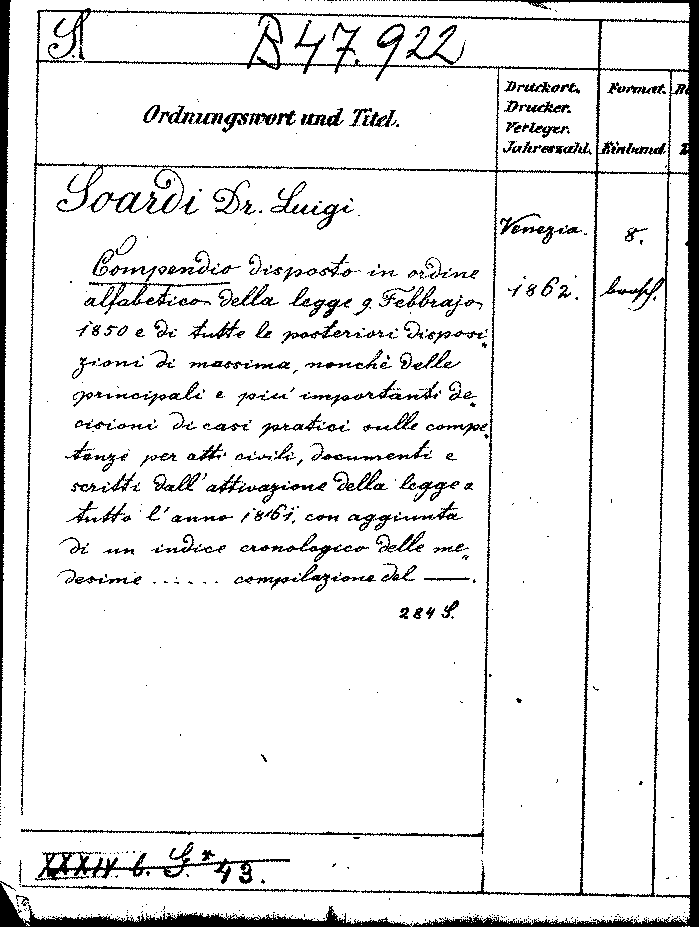 S.
B 47.922
Ordnungswort und Titel.
Druckort.
Drucker.
Verleger.
Jahreszahl.
Format.
Einband.
Soardi Dr. Luigi.
Venezia.
8.
Compendio disposto in ordine
1862.
brosch.
alfabetico della legge 9. Febbrajo
1850 e di tutte le posteriori disposi„
zioni di massima, nonchè delle
principali e più importanti de„
cisioni di casi pratici sulle compe„
tenze per atti civili, documenti e
scritti dall'attivazione della legge a
tutto l'anno 1861, con aggiunta
di un indice cronologico delle me„
desime ...... compilazione del —.
284 S.
XXXIV. b. G.* 43.